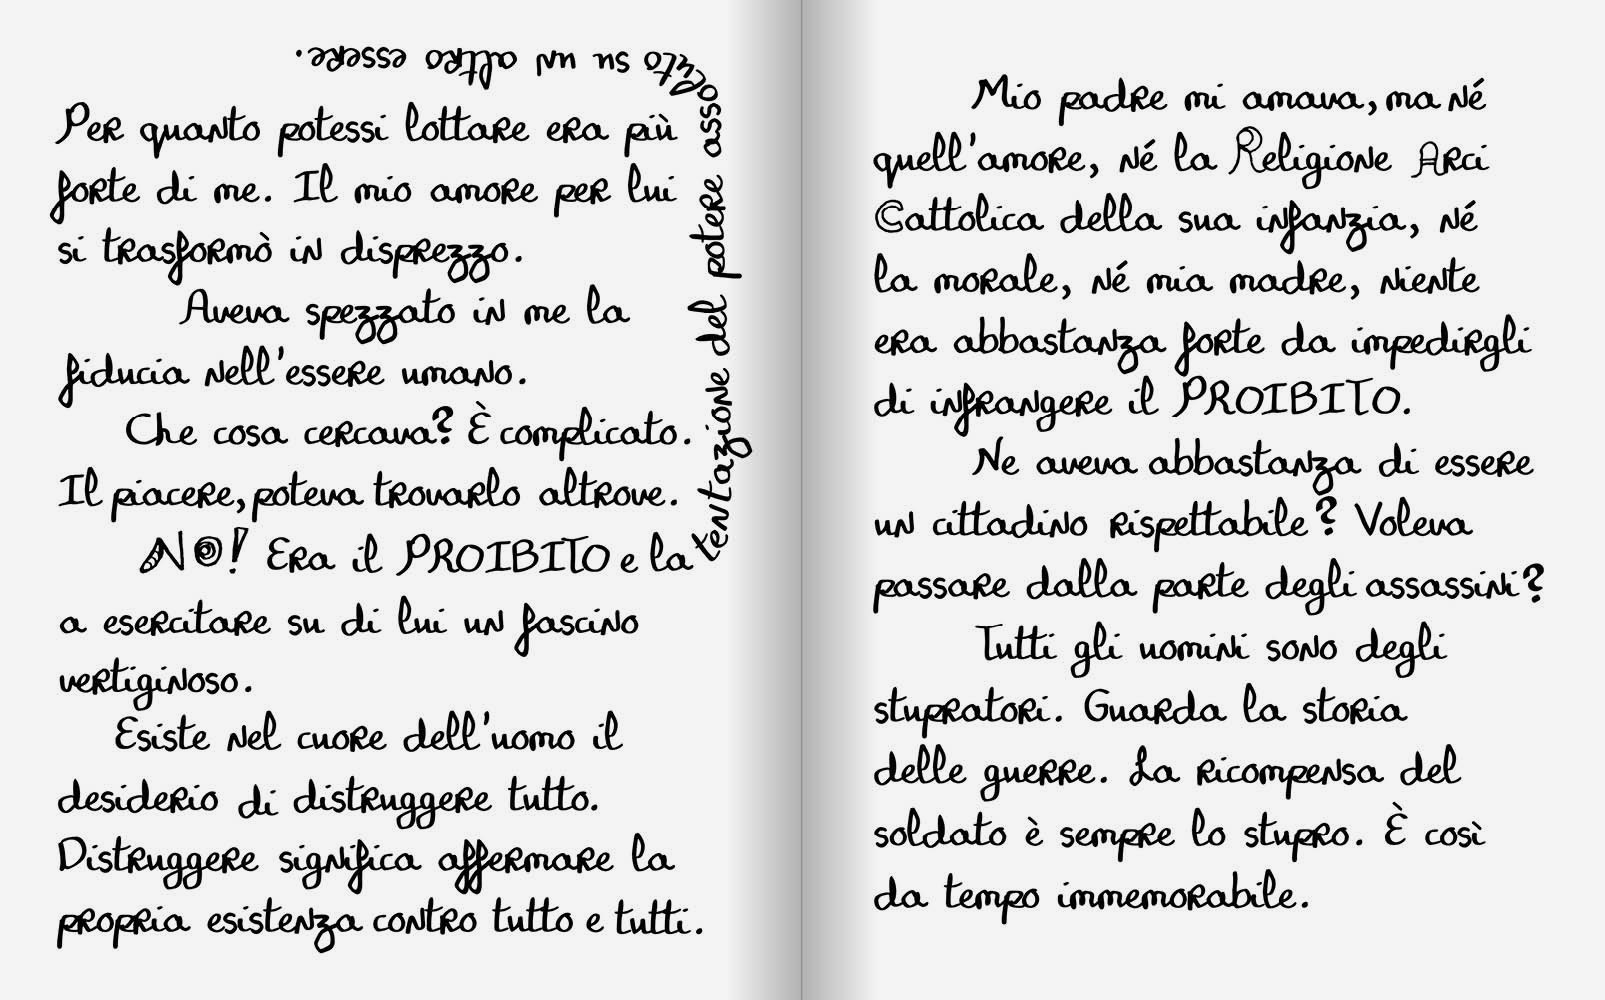 Per quanto potessi lottare era più
forte di me. Il mio amore per lui
si trasformò in disprezzo.
Aveva spezzato in me la
fiducia nell'essere umano.
Che cosa cercava? È complicato.
Il piacere, poteva trovarlo altrove.
NO! Era il PROIBITO e la
tentazione del potere asso
luto su un altro essere.
a esercitare su di lui un fascino
vertiginoso.
Esiste nel cuore dell'uomo il
desiderio di distruggere tutto.
Distruggere significa affermare la
propria esistenza contro tutto e tutti.
Mio padre mi amava, ma né
quell'amore, né la Religione Arci
Cattolica della sua infanzia, né
la morale, né mia madre, niente
era abbastanza forte da impedirgli
di infrangere il PROIBITO.
Ne aveva abbastanza di essere
un cittadino rispettabile? Voleva
passare dalla parte degli assassini?
Tutti gli uomini sono degli
stupratori. Guarda la storia
delle guerre. La ricompensa del
soldato è sempre lo stupro. È così
da tempo immemorabile.